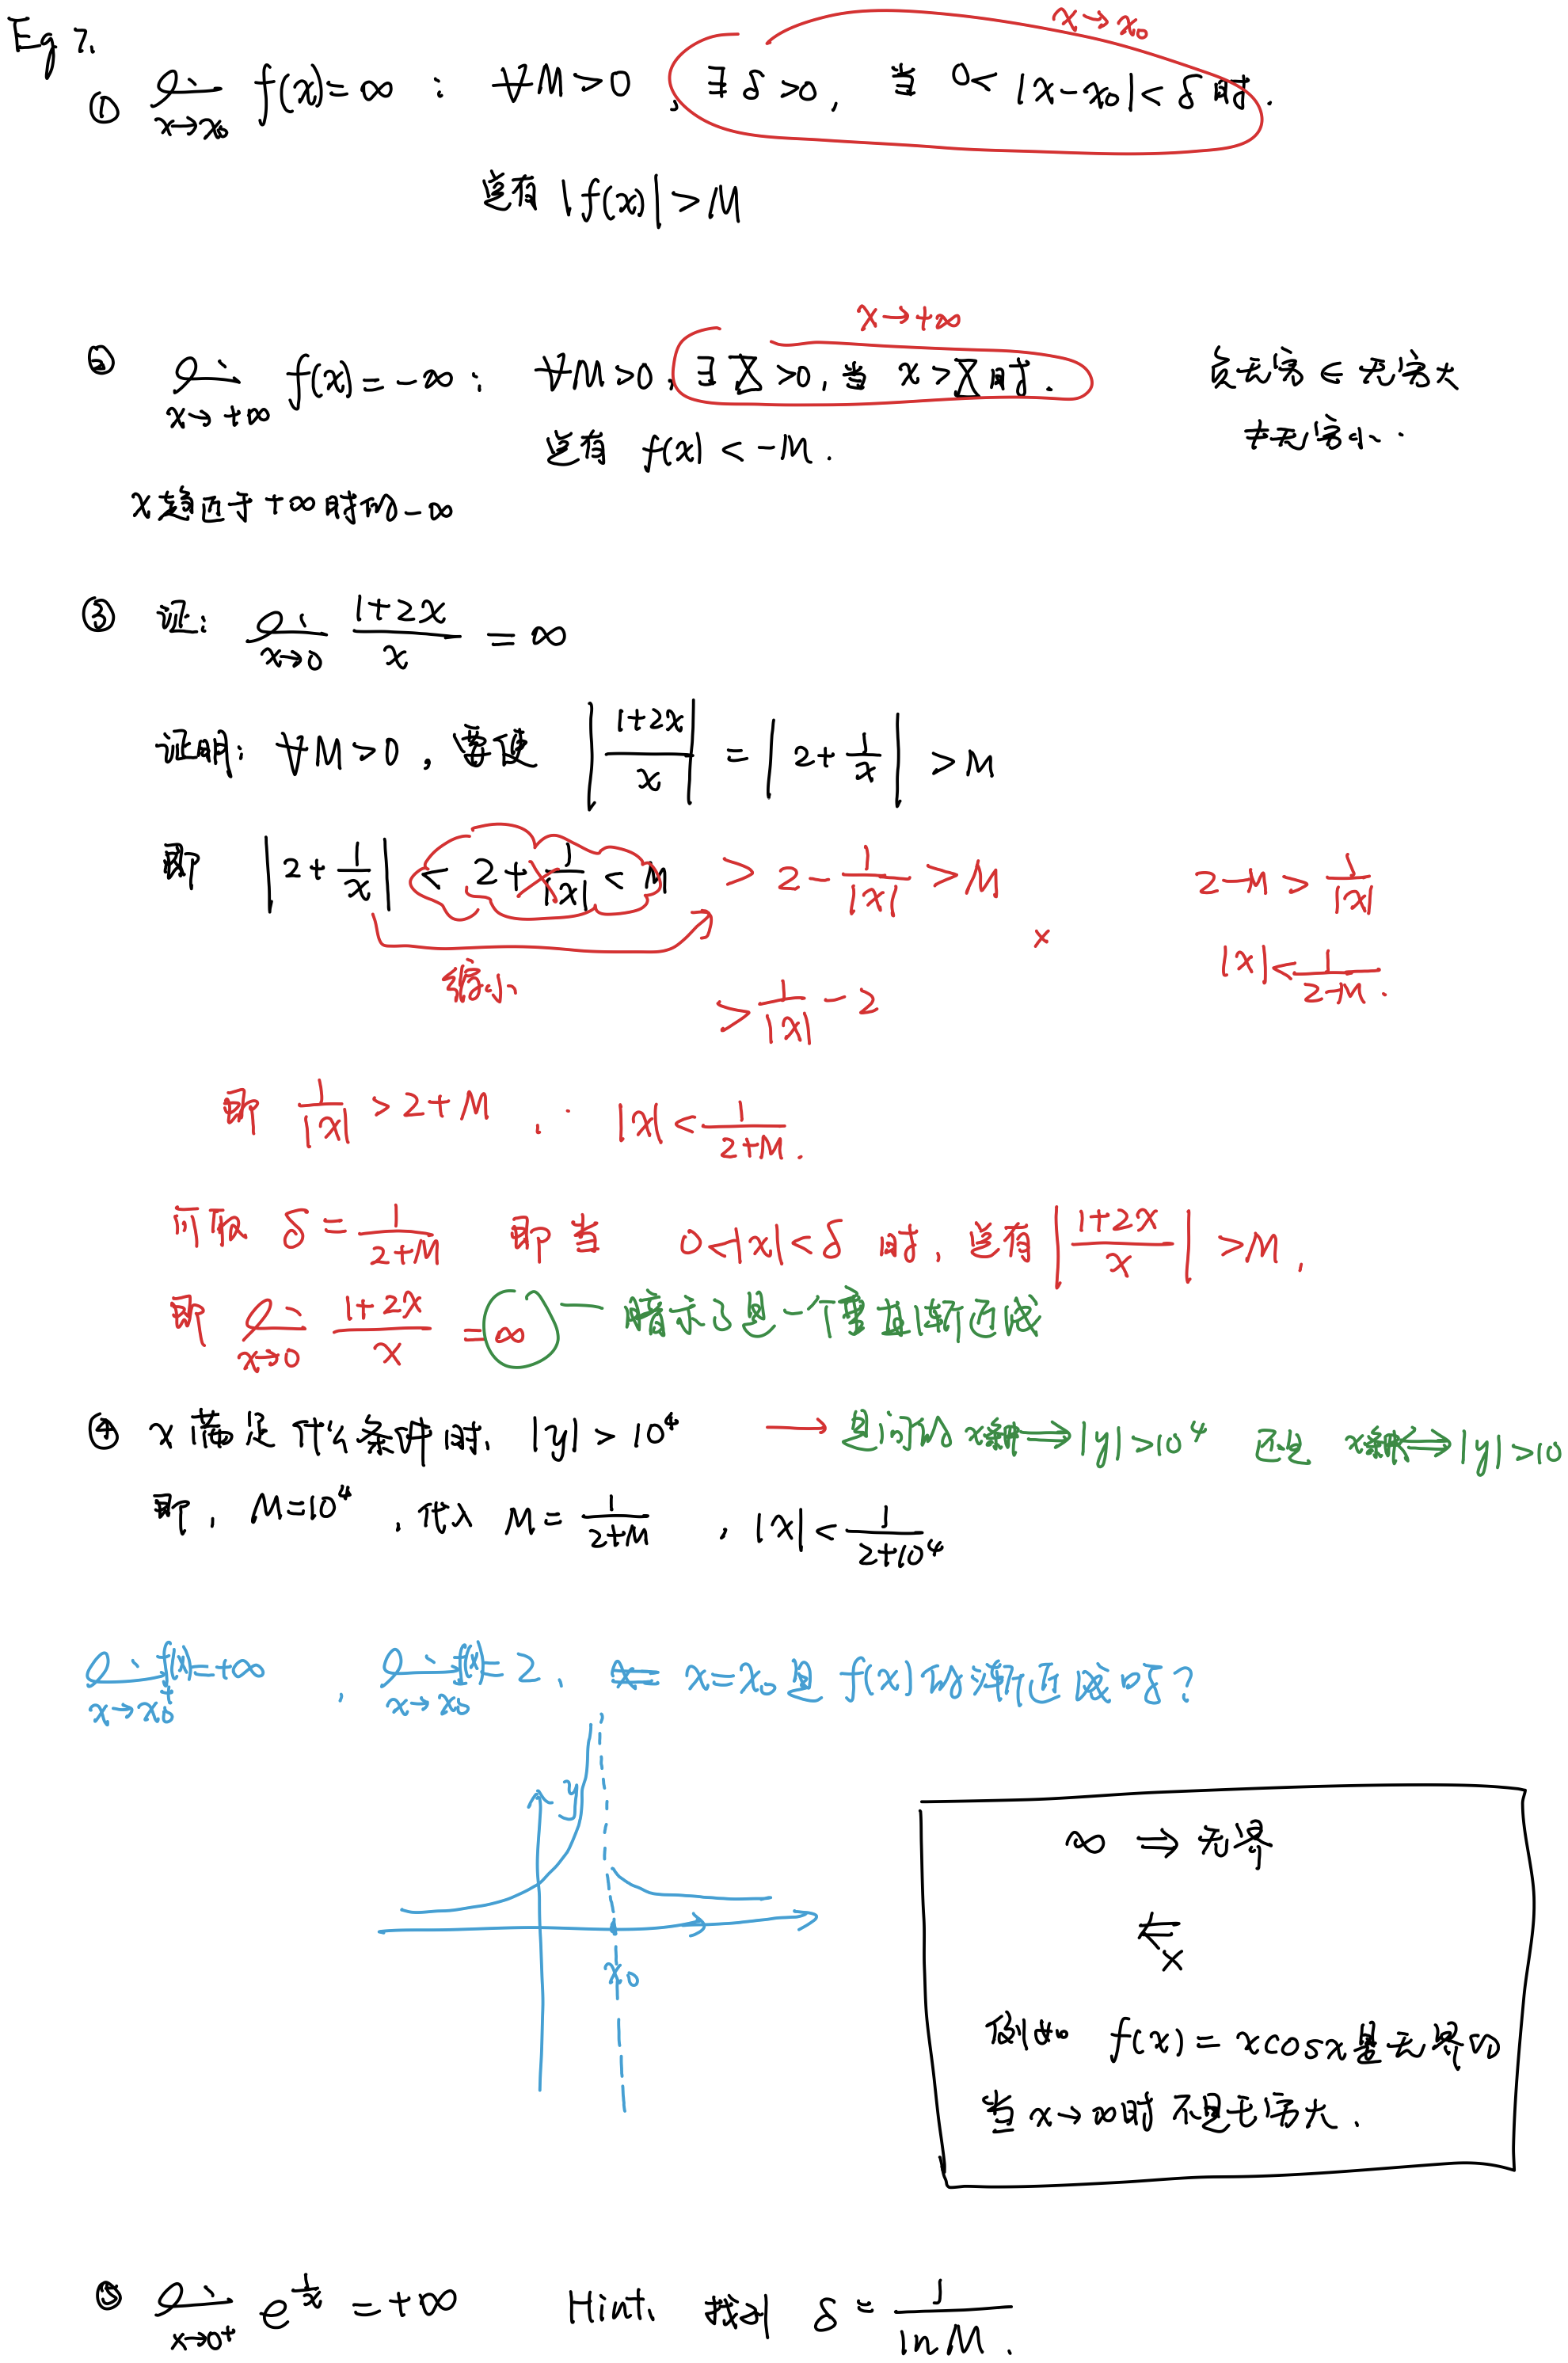 Eg 7.
x→x₀
① lim x→x₀ f(x)=∞ : ∀M>0, ∃δ>0, 当 0<|x-x₀|<δ时.
总有 |f(x)|>M
x→+∞
② lim x→+∞ f(x)=-∞: ∀M>0, ∃X>0,当 x>X时.
总有 f(x)<-M.
负无穷∈无穷大
非无穷小.
x趋近于+∞时的-∞
③ 证: lim x→0 (1+2x)/x = ∞
证明: ∀M>0, 要使 |(1+2x)/x| = |2+1/x| >M
即 |2+1/x| < 2+1/|x| < M > 2-1/|x| >M
2-M > 1/|x|
×
|x|<1/(2-M).
缩小
>1/|x| -2
即 1/|x| >2+M, ∴ |x|<1/(2+M).
可取 δ=1/(2+M) 即当 0<|x|<δ 时, 总有|(1+2x)/x| >M,
即 lim x→0 (1+2x)/x =∞ — 暗示了是一个垂直渐近线
④ x满足什么条件时, |y|>10⁴ → 是问的 x条件⇒|y|>10⁴ 不是 x条件⇔|y|>10
即, M=10⁴, 代入 M=1/(2+M), |x|<1/(2+10⁴)
lim x→x₀⁺ f(x)=+∞, lim x→x₀⁻ f(x)=2, x=x₀是f(x)的渐近线吗?
y
x₀
∞ ⇒ 无界
⇐ ×
例如 f(x)=xcosx是无界的
当x→∞时 不是无穷大.
⑤ lim x→0⁺ e^(1/x) =+∞ Hint: 找到 δ=1/lnM.